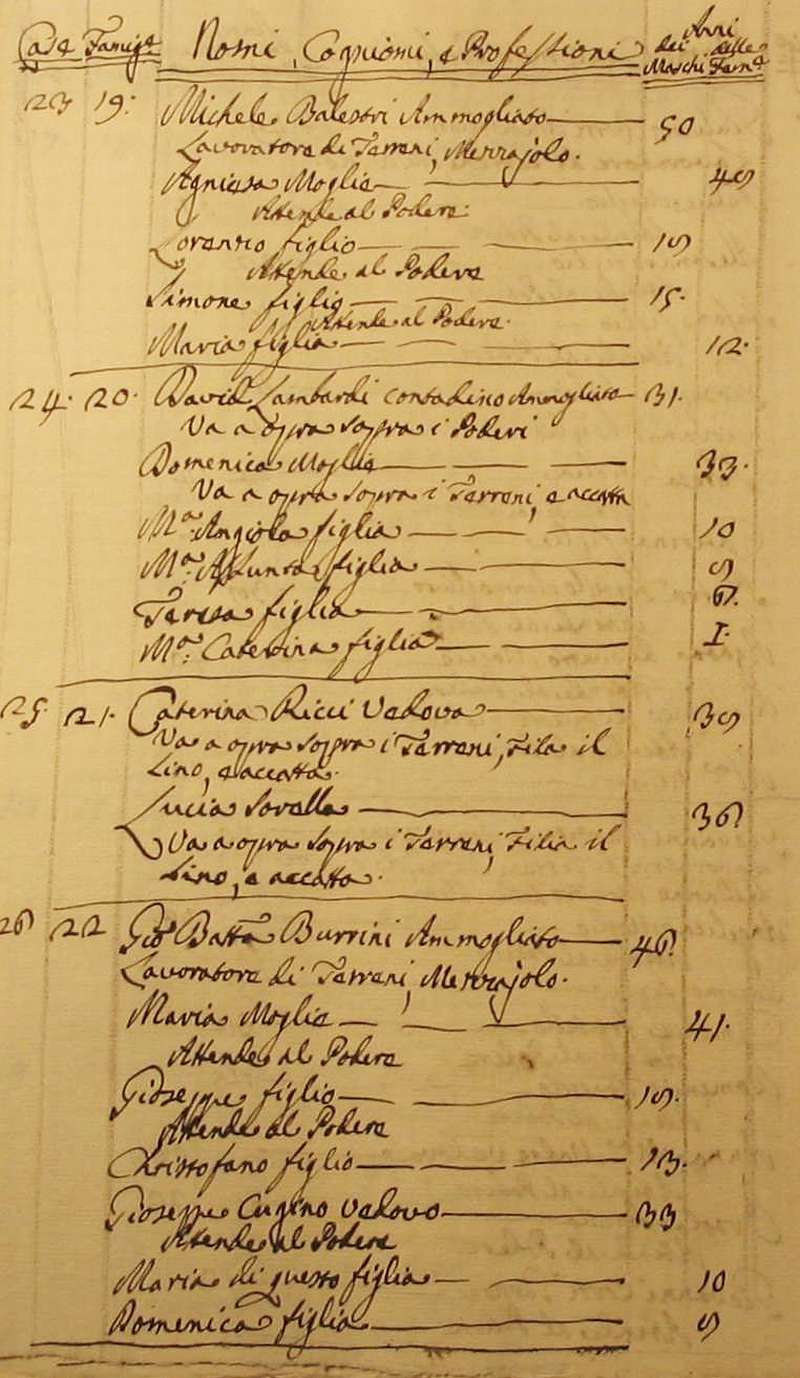 Case Famigᵉ Nomi, Cogniomi, e Professioni Anni dei Maschi delle Femᵉ
23 19: Michele Balestri Ammogliato 50
Lavoratore di Terreni, Mezzajolo.
Agniesa Moglie 49
Attende al Podere.
Lorenzo figlio 19
Attende al Podere
Simone figlio 15.
Attende al Podere.
Maria figlia 12.
24. 20. David Lambardi Contadino Ammogliato 31.
Va a opra sopra i Poderi
Domenica Moglie 33.
Va a opra sopra i Terreni, e accatta
Mᵃ. Angiola figlia 10
Mᵃ. Assunta figlia 9
Teresa figlia 6.
Mᵃ. Caterina figlia 1.
25. 21. Caterina Ricci Vedova 39
Va a opra sopra i Terreni, Fila il
Lino, e accatta.
Lucia Sorella 36
Va a opra sopra i Terreni, Filia il
Lino, e accatta.
26 22 Gioˢ Battᵃ Burrini Ammogliato 46
Lavoratore di Terreni, Mezzajolo.
Maria Moglie 41.
Attende al Podere
Gioseppe figlio 19.
Attende al Podere
Christofano figlio 13.
Gioseppe Cugino Vedovo 33
Attende al Podere
Maria di questo figlia 10
Domenica figlia 9